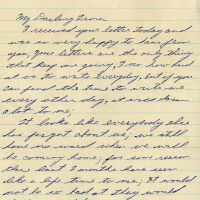 My Darling
I received your letter today and
was so very happy to hear from
you. Your letters are the only thing
that keep me going, I no how hard
it is to write everyday, but if you
can find the time to write me
every other day, it would mean
a lot to me.
It looks like everybody else
has forgot about us, we still
have no word when we will
be coming home, for some reason
these last 2 months have seem
like a life time to me, it would
not be so bad if they would